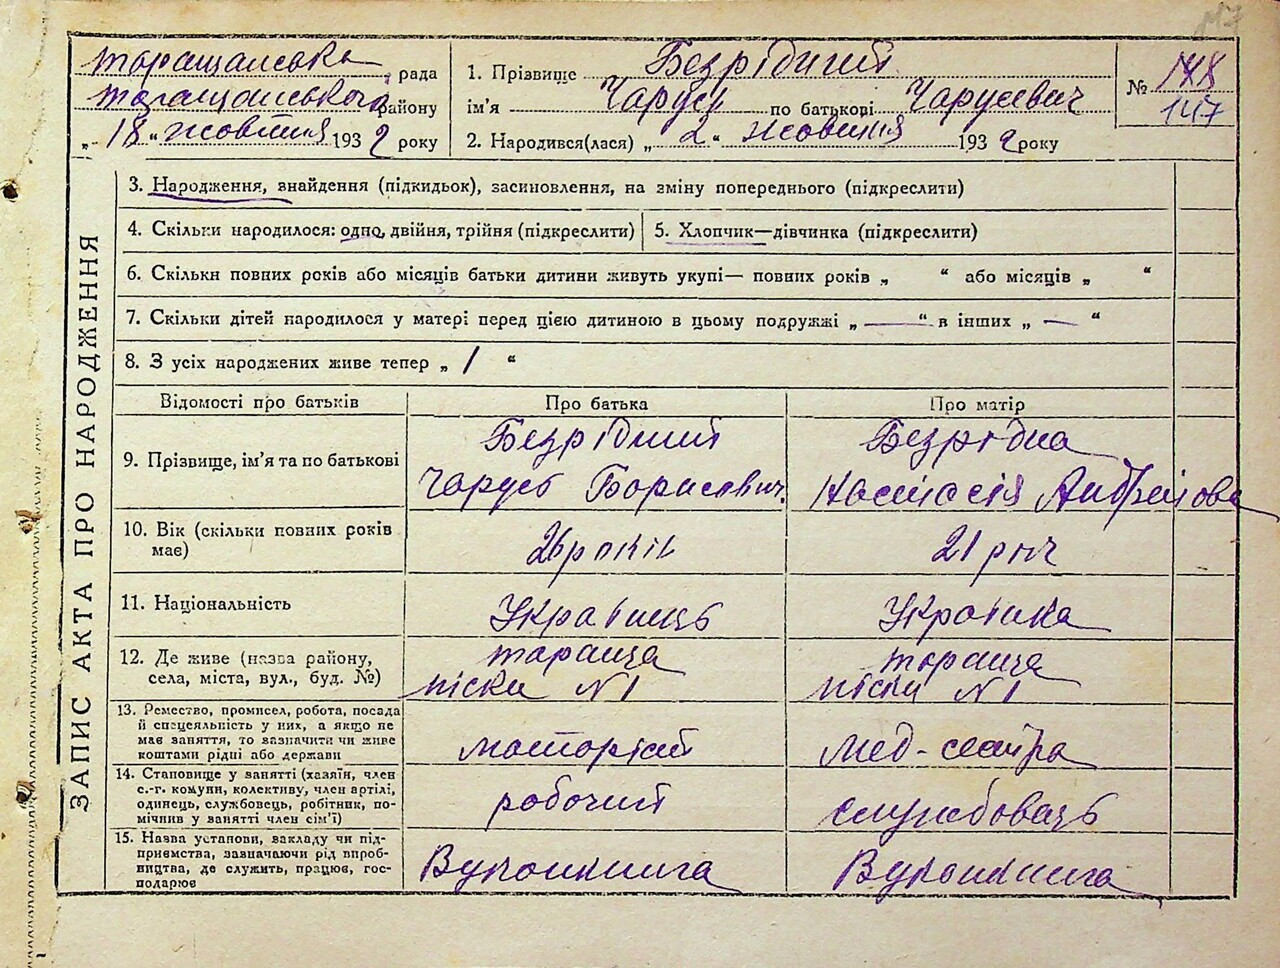 117
таращанська рада
таращанського району
„ 18 “ жовтня 1932 року
1. Прізвище Безрідний
ім'я Чарусь по батькові Чарусевич
2. Народився(лася) „ 2 “ жовтня 1932 року
№ 148
147
ЗАПИС АКТА ПРО НАРОДЖЕННЯ
3. Народження, знайдення (підкидьок), засиновлення, на зміну попереднього (підкреслити)
4. Скільки народилося: одно, двійня, трійня (підкреслити)
5. Хлопчик—дівчинка (підкреслити)
6. Скільки повних років або місяців батьки дитини живуть укупі— повних років „ “ або місяців „ “
7. Скільки дітей народилося у матері перед цією дитиною в цьому подружжі „ — “ в інших „ — “
8. З усіх народжених живе тепер „ 1 “
Відомості про батьків
Про батька
Про матір
9. Прізвище, ім'я та по батькові
Безрідний
Чарусь Борисович.
Безрідна
Настасія Андреінова
10. Вік (скільки повних років
має)
26 років
21 рік
11. Національність
Українець
Українка
12. Де живе (назва району,
села, міста, вул., буд. №)
тараща
піски N 1
тараща
піски N 1
13. Ремество, промисел, робота, посада
й спецеяльність у них, а якщо не
має заняття, то зазначити чи живе
коштами рідні або держави
моторіст
мед-сестра
14. Становище у занятті (хазяїн, член
с.-г. комуни, колективу, член артілі,
одинець, службовець, робітник, по-
мічник у занятті член сім'ї)
робочий
службовець
15. Назва установи, закладу чи під-
приємства, зазначаючи рід виробництва
ництва, де служить, працює, гос-
подарює